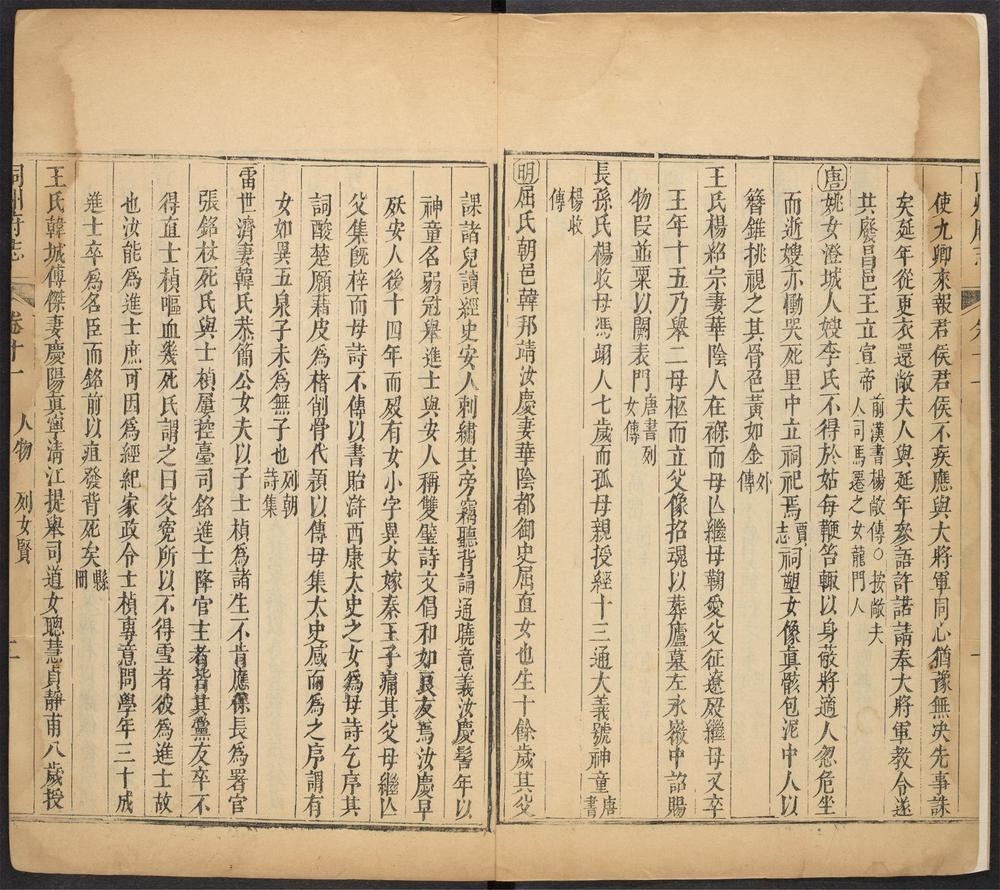 使九卿來報君侯君侯不疾應與大將軍同心猶豫無決先事誅
矣延年從更衣還敞夫人與延年參語許諾請奉大將軍教令遂
共廢昌邑王立宣帝前漢書楊敞傳○按敞夫人司馬遷之女龍門人
唐姚女澄城人嫂李氏不得於姑每鞭笞輒以身蔽將適人忽危坐
而逝嫂亦慟哭死里中立祠祀焉賈志祠塑女像真骸包泥中人以
簪錐挑視之其骨色黃如金外傳
王氏楊紹宗妻華陰人在褓而母亾繼母鞠愛父征遼歿繼母又卒
王年十五乃舉二母柩而立父像招魂以葬廬墓左永徽中詔賜
物段並粟以闕表門唐書列女傳
長孫氏楊收母馮翊人七歲而孤母親授經十三通大義號神童唐書
楊收傳
明屈氏朝邑韓邦靖汝慶妻華陰都御史屈直女也生十餘歲其父
課諸兒讀經史安人刺繡其旁竊聽背誦通曉意義汝慶髫年以
神童名弱冠舉進士與安人稱雙璧詩文倡和如良友焉汝慶早
殀安人後十四年而歿有女小字異女嫁秦王子痛其父母繼亾
父集旣梓而母詩不傳以書貽滸西康太史之女為母詩乞序其
詞酸楚願藉皮為楮削骨代穎以傳母集太史感而為之序謂有
女如異五泉子未為無子也列朝詩集
雷世濟妻韓氏恭簡公女夫以子士楨為諸生不肯應縣長為署官
張銘杖死氏與士楨屢控臺司銘進士降官主者皆其黨友卒不
得直士楨嘔血幾死氏謂之曰父寃所以不得雪者彼為進士故
也汝能為進士庶可因為經紀家政令士楨專意問學年三十成
進士卒為名臣而銘前以疽發背死矣縣冊
王氏韓城傅傑妻慶陽真寧清江提舉司道女聰慧貞靜甫八歲授
同州府志 卷十一 人物 列女賢 二